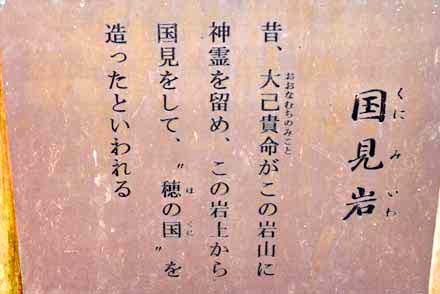 国見岩
くにみいわ
昔、大己貴命がこの岩山に
おおなむちのみこと
神霊を留め、この岩上から
国見をして、〝穂の国〟を
ほ くに
造ったといわれる